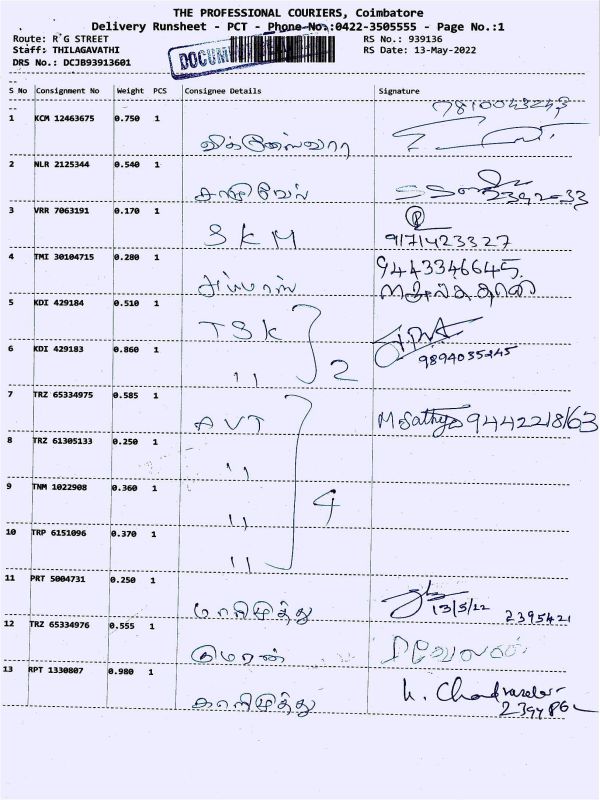 THE PROFESSIONAL COURIERS, Coimbatore
Delivery Runsheet - PCT - Phone No.:0422-3505555 - Page No.:1
Route: R G STREET RS No.: 939136
Staff: THILAGAVATHI RS Date: 13-May-2022
DRS No.: DCJB93913601
DOCUM
S No Consignment No Weight PCS Consignee Details Signature
7810043243
1 KCM 12463675 0.750 1 விக்னேஸ்வரா
2 NLR 2125344 0.540 1 சக்திவேல்
3 VRR 7063191 0.170 1 SKM
9171423327
4 TMI 30104715 0.280 1 9443346645
5 KDI 429184 0.510 1 TSK
6 KDI 429183 0.860 1 " 2 9894035245
7 TRZ 65334975 0.585 1 AVT M Sathya 9442218163
8 TRZ 61305133 0.250 1 "
9 TNM 1022908 0.360 1 " 4
10 TRP 6151096 0.370 1 "
11 PRT 5004731 0.250 1 மாரிமுத்து 13/5/22 2395421
12 TRZ 65334976 0.555 1 குமரன்
13 RPT 1330807 0.980 1 காளிமுத்து